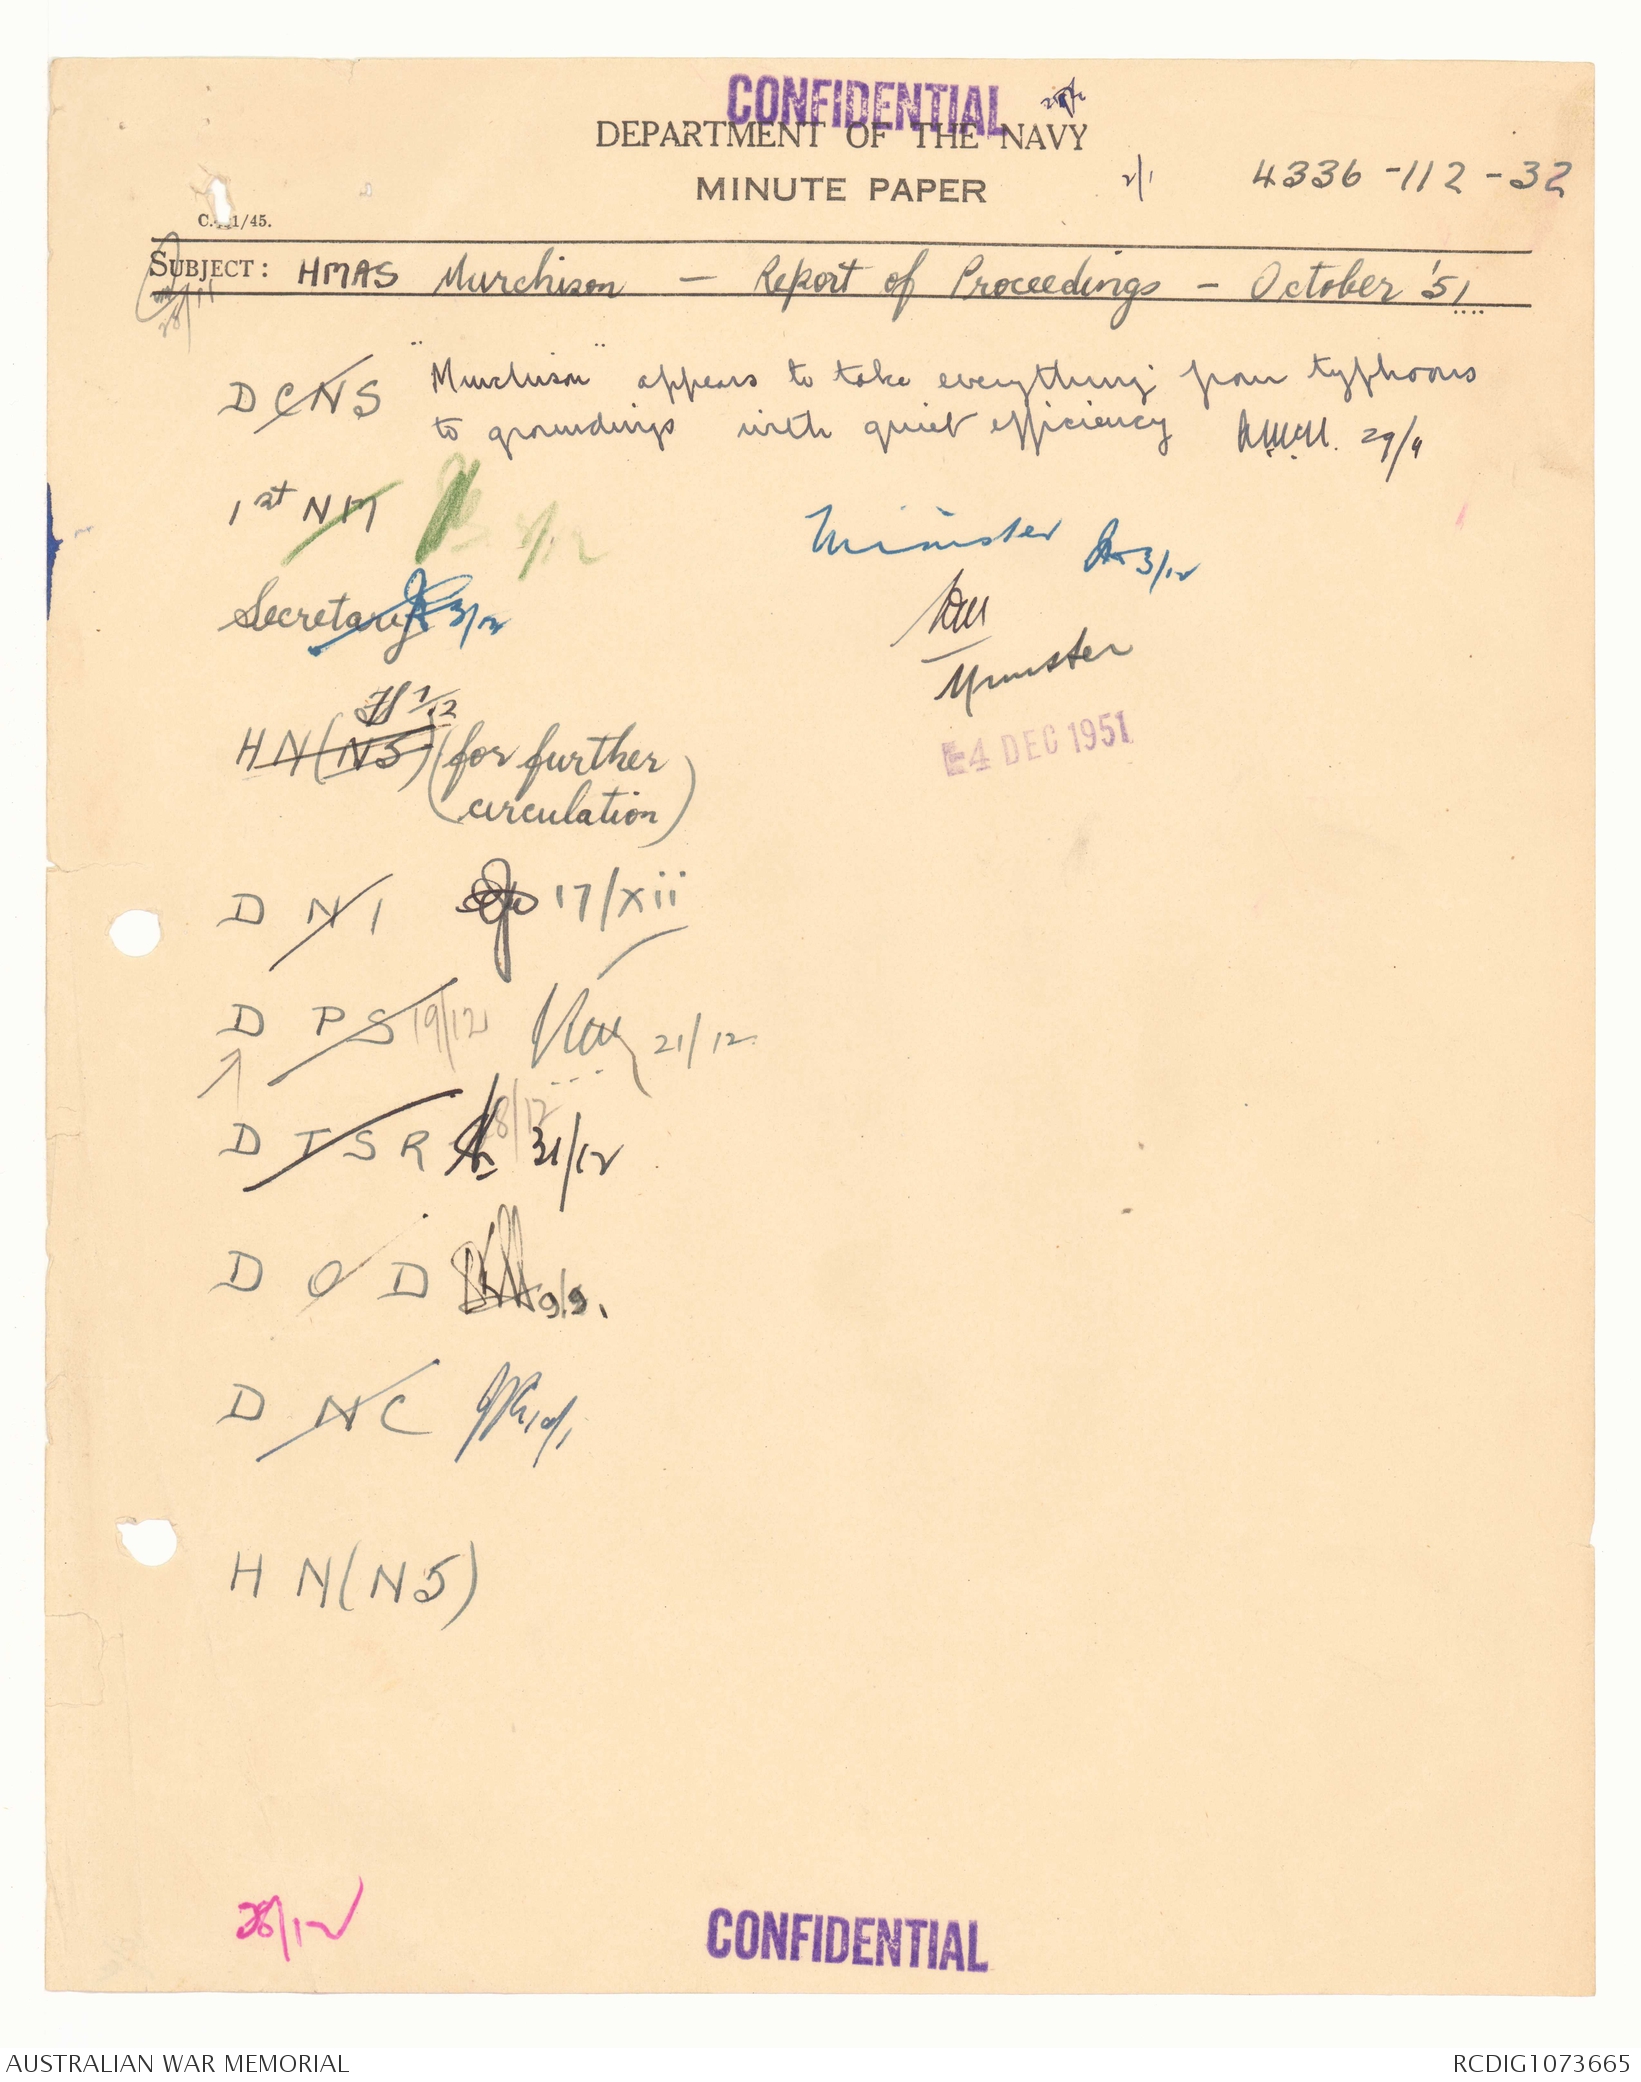 CONFIDENTIAL
DEPARTMENT OF THE NAVY
MINUTE PAPER
2/1
4336-112-32
SUBJECT: HMAS Murchison — Report of Proceedings — October '51
28/11
DCNS "Murchison" appears to take everything from typhoons
to groundings with quiet efficiency 29/11
1st NM
Minister 3/12
Secretary 3/12
Minister
4 DEC 1951
7/12
HN(N5) (for further
circulation)
D N I 17/xii
D P S 19/12 21/12
D T S R 28/12 31/12
D O D
D N C
H N(N5)
28/12
CONFIDENTIAL
AUSTRALIAN WAR MEMORIAL
RCDIG1073665